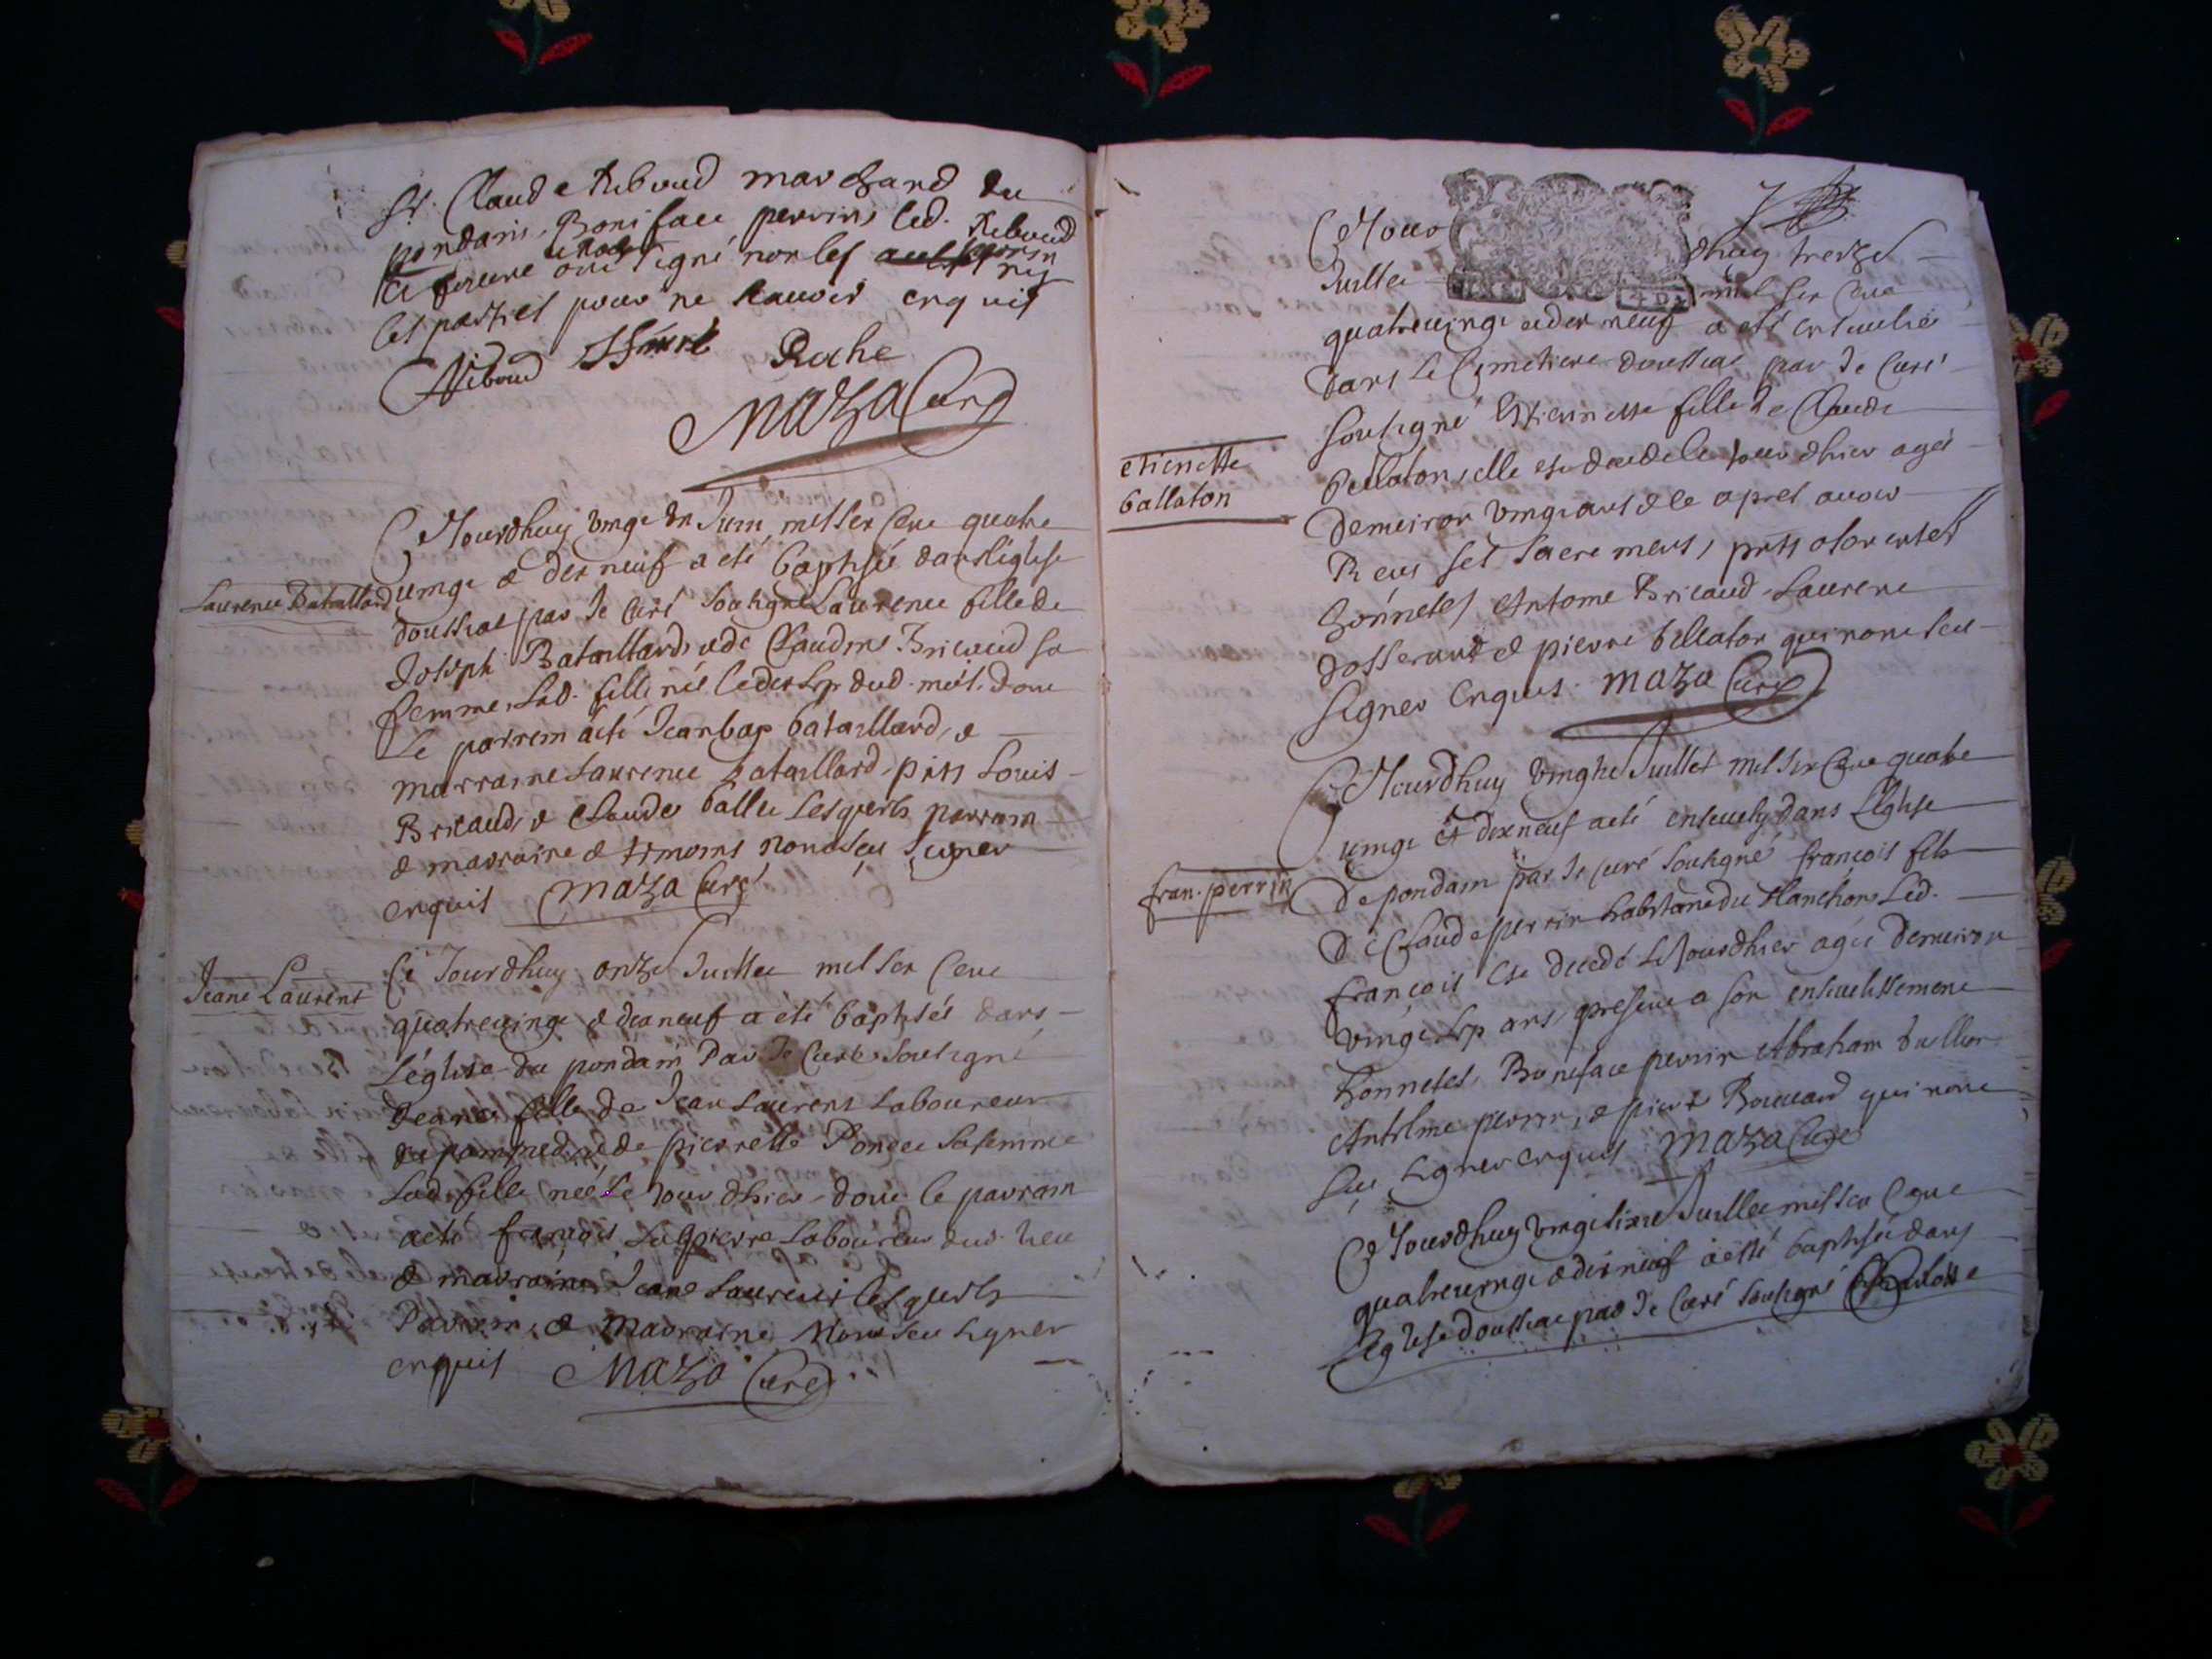 Sr. Claude Riboud marchand du
pondain, Boniface perrin led. Riboud
ont signé non les
les parties pour ne scavoir enquis
Riboud Roche
MAZA Curé
Ce Jourdhuy vingt un Juin mil six cent quatre
Laurence Bataillard
vingt & dix neuf a eté baptisée dans l'eglise
doussiat par Je Curé soubsigné Laurence fille de
Joseph Bataillard, & de Claudine Bricaud sa
femme, lad. fille née le dix sep dud. mois, dont
le parrein a eté Jean bap bataillard, &
marraine Laurence bataillard, pnts Louis
Bricaud, & Claude ballet lesquels parrain
& marraine & temoins nont sceu signer
enquis maza Curé
Jeane Laurent
Ce Jourdhuy onze Juillet mil six cent
quatrevingt & dixneuf a eté baptisée dans
L'église du pondain Par Je Curé soubsigné
Jeanne fille de Jean Laurent Laboureur
& de pierrette Poncet sa femme
lad. fille née le jour dhier dont le parrain
a eté françois Laboureur dud. lieu
& marraine Jeane Laurent lesquels
Parrein, & marraine nont sceu signer
enquis MAZA Curé
7
Ce Jour dhuy treize
Juillet mil six cent
quatrevingt et dix neuf a eté ensevelie
dans le Cymetiere doussiat par Je Curé
soubsigné Etiennette fille de Claude
etienette
ballaton
bellaton, elle est decedé le jour dhier agée
denviron vingt ans & ce apres avoir
Receu ses sacrements, pnts a son enter
honnetes Antoine Bricaud Laurent
Josserand & pierre bellaton qui nont sceu
signer enquis. maza Curé
Ce Jourdhuy vingt Juillet mil six cent quatre
vingt & dixneuf a eté ensevely dans l'Eglise
fran. perrin
De pondain par Je curé soubsigné françois fils
De Claude perrin habitant du Planchon led.
françois est decedé le jourdhier agé denviron
vingt sep ans, present a son ensevelissement
honnetes, Boniface perrin Abraham
Antelme perrin, & pierre Bouvard qui nont
sceu signer enquis maza Curé
Ce Jourdhuy vingt sixie Juillet mil six cent
quatrevingt & dix neuf a esté baptisée dans
L'eglise doussiat par Je Curé soubsigné Charlotte